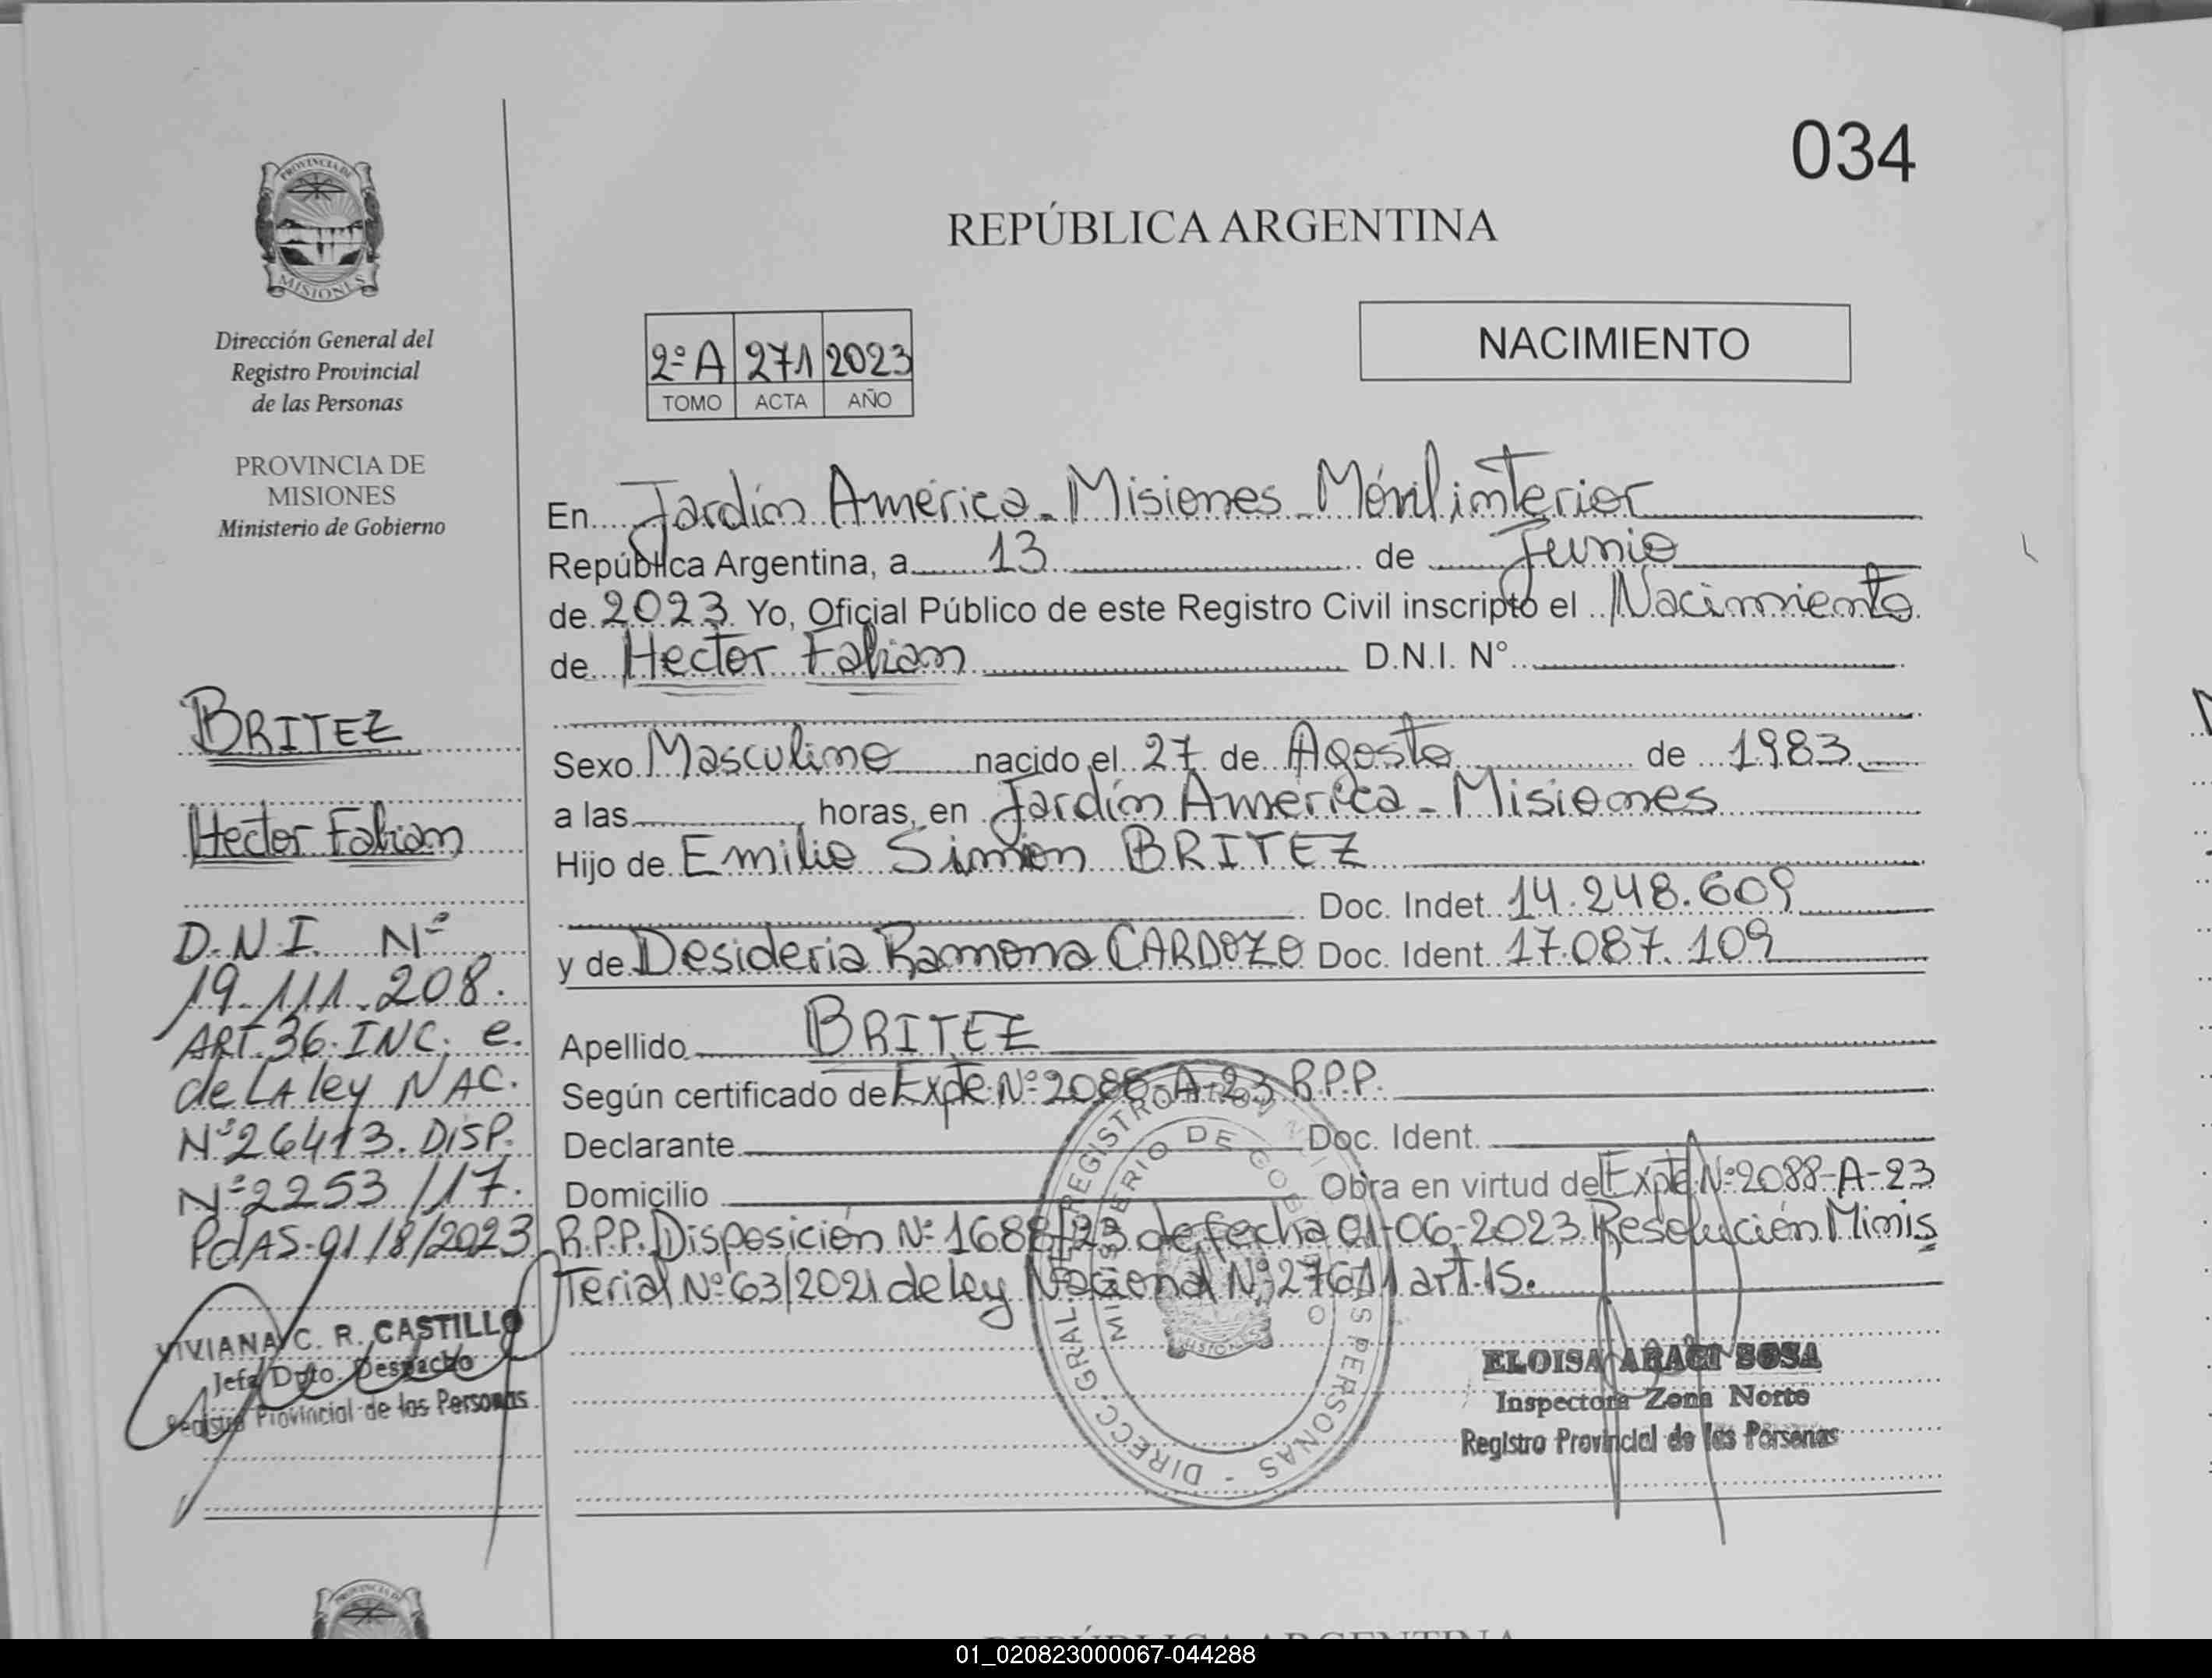 034
REPÚBLICA ARGENTINA
PROVINCIA DE
MISIONES
Dirección General del
Registro Provincial
de las Personas
PROVINCIA DE
MISIONES
Ministerio de Gobierno
2º A 271 2023
TOMO ACTA AÑO
NACIMIENTO
En Jardín América - Misiones - Móvil interior
República Argentina, a 13 de Junio
de 2023 Yo, Oficial Público de este Registro Civil inscripto el Nacimiento
de Hector Fabian D.N.I. N°
Sexo Masculino nacido el 27 de Agosto de 1983
a las horas, en Jardín América - Misiones
Hijo de Emilio Simon BRITEZ
Doc. Indet. 14.248.609
y de Desideria Ramona CARDOZO Doc. Ident. 17.087.109
Apellido BRITEZ
Según certificado de Expte Nº 2088-A-23 R.P.P.
Declarante Doc. Ident.
Domicilio Obra en virtud del Expte Nº 2088-A-23
R.P.P. Disposición Nº 1688/23 de fecha 01-06-2023 Resolución Minis
Terial Nº 63/2021 de ley Nacional Nº 27611 art. 15.
BRITEZ
Hector Fabian
D.N.I. Nº
19.111.208.
ART. 36. INC. e.
de LA ley NAC.
Nº 26413. DISP.
Nº 2253/17.
PdAS. 01/8/2023
VIVIANA C. R. CASTILLO
Jefa Dpto. Despacho
Registro Provincial de las Personas
DIRECC. GRAL. REGISTRO PROV. PERSONAS
MINISTERIO DE GOBIERNO
MISIONES
ELOISA ARACI SOSA
Inspectora Zona Norte
Registro Provincial de las Personas
PROVINCIA DE
REPÚBLICA ARGENTINA
01_020823000067-044288